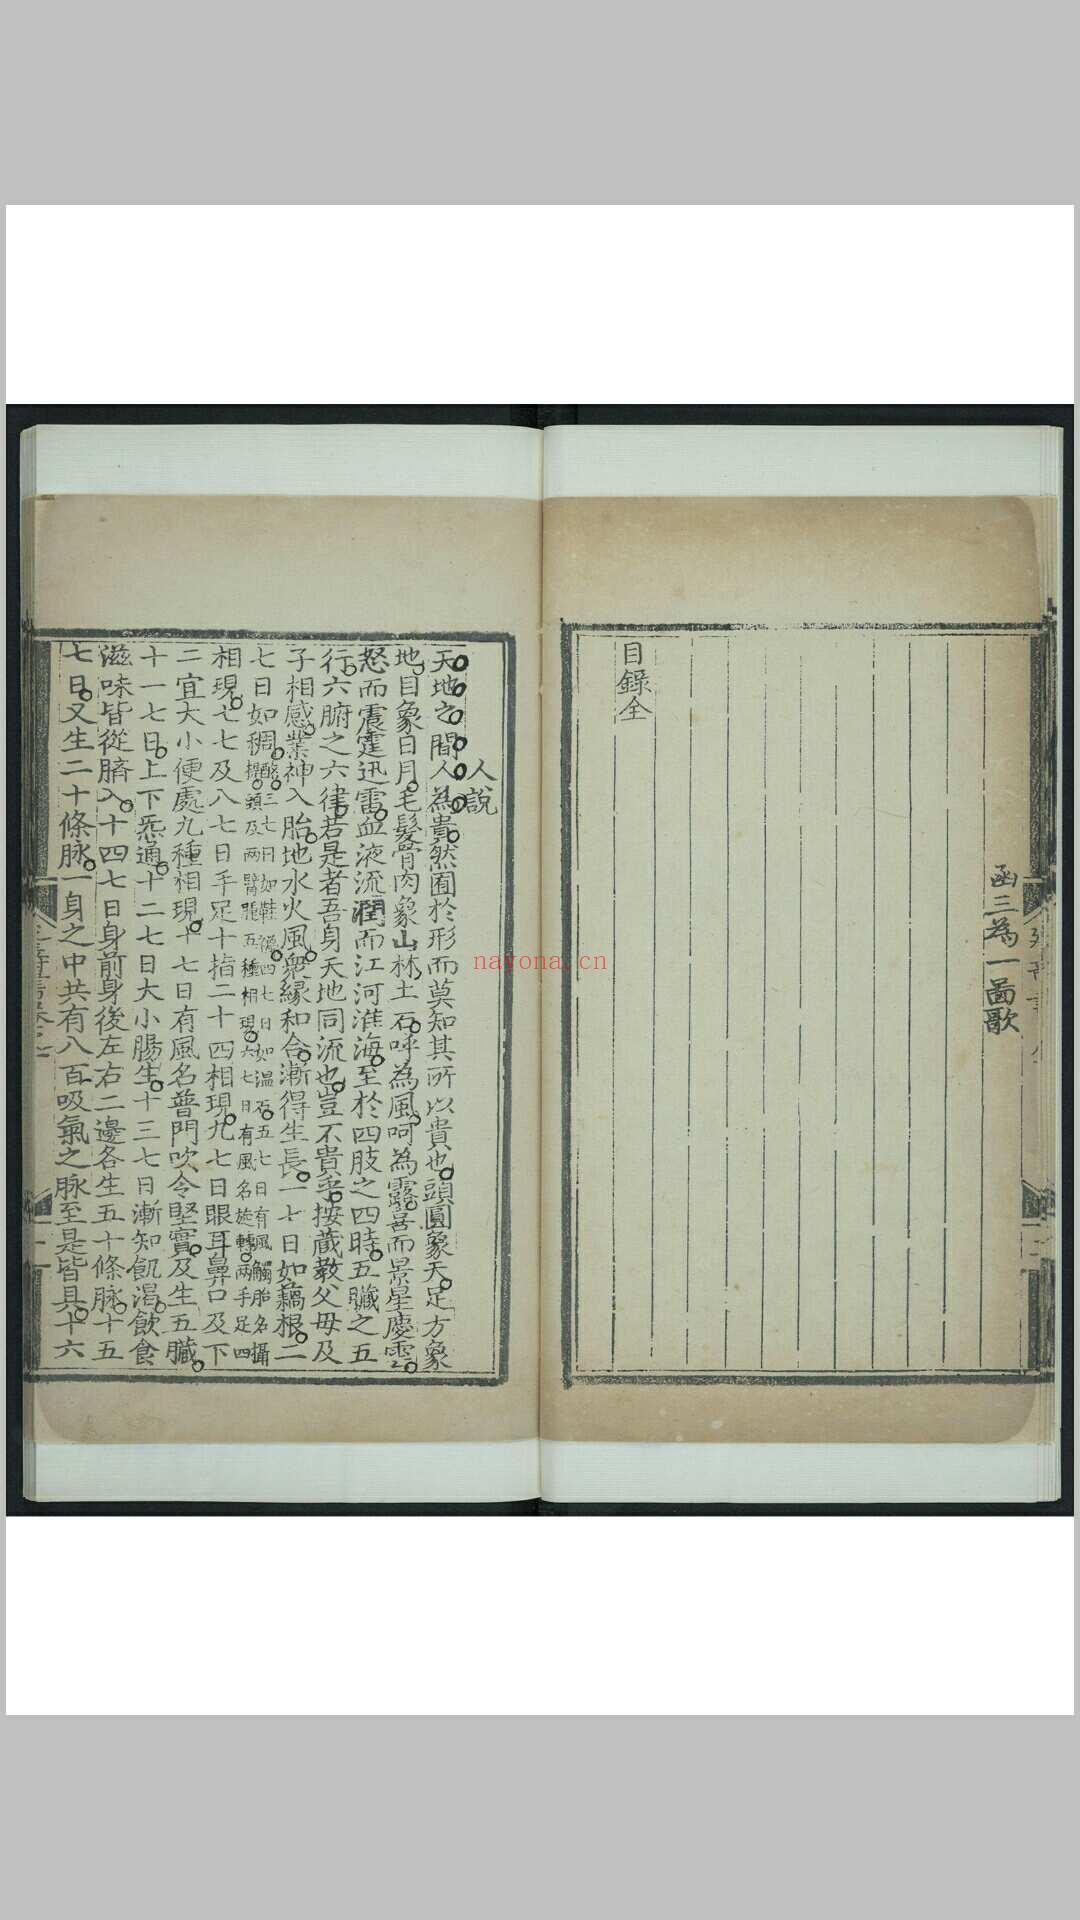 函三為一圖歌
目錄全
人說
天地之間人為貴然囿於形而莫知其所以貴也頭圓象天足方象
地目象日月毛髮骨肉象山林土石呼為風呵為露喜而景星慶雲
怒而震霆迅雷血液流潤而江河淮海至於四肢之四時五臟之五
行六腑之六律若是者吾身天地同流也豈不貴乎按藏教父母及
子相感業神入胎地水火風衆緣和合漸得生長一七日如藕根二
七日如稠酪三七日如鞋𥗬四七日如温石五七日有風觸胎名攝
攝頭及兩臂脛五種相現六七日有風名旋轉兩手足四
相現七七及八七日手足十指二十四相現九七日眼耳鼻口及下
二宜大小便處九種相現十七日有風名普門吹令堅實及生五臟
十一七日上下炁通十二七日大小腸生十三七日漸知飢渴飲食
滋味皆從臍入十四七日身前身後左右二邊各生五十條脉十五
七日又生二十條脉一身之中共有八百吸氣之脉至是皆具十六
nayona.cn